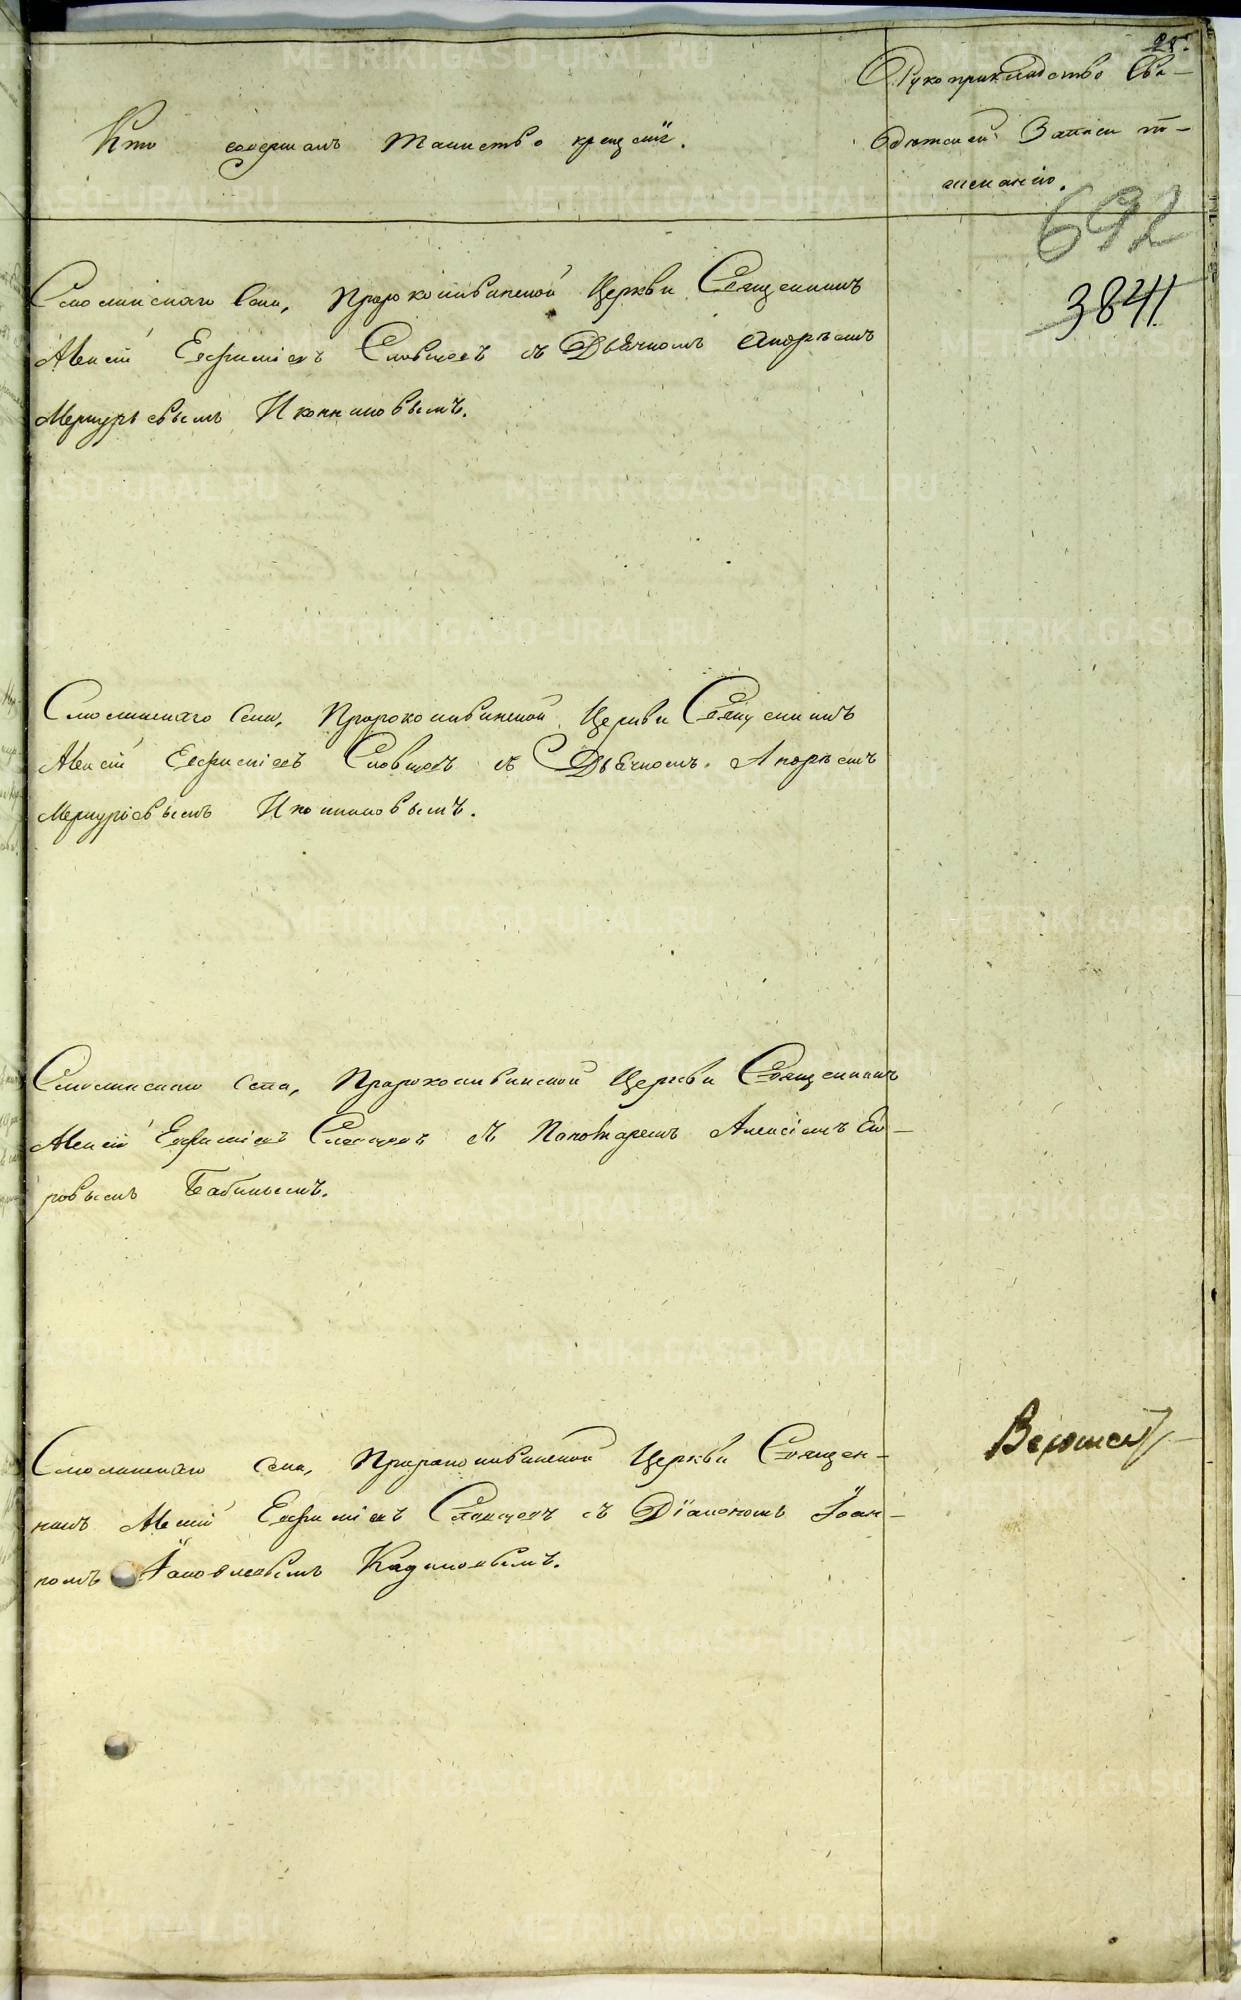 25.
Кто совершалъ таинство крещенія.
Рукоприкладство Сви-
дѣтелей Записи по
желанію.
692
3841.
Смолинскаго Села, Пророкоильинской Церкви Священникъ
Алексій Евфиміевъ Словцовъ съ Дьячкомъ
Меркурьевымъ Иконниковымъ.
Смолинскаго Села, Пророкоильинской Церкви Священникъ
Алексій Евфиміевъ Словцовъ съ Дьячкомъ
Меркуріевымъ Иконниковымъ.
Смолинскаго Села, Пророкоильинской Церкви Священникъ
Алексій Евфиміевъ Словцовъ съ Пономаремъ Алексіемъ
Бабинымъ.
Смолинскаго Села, Пророкоильинской Церкви Священ-
никъ Алексій Евфиміевъ Словцовъ съ Діакономъ Іоан-
номъ Іаковлевымъ
METRIKI.GASO-URAL.RU